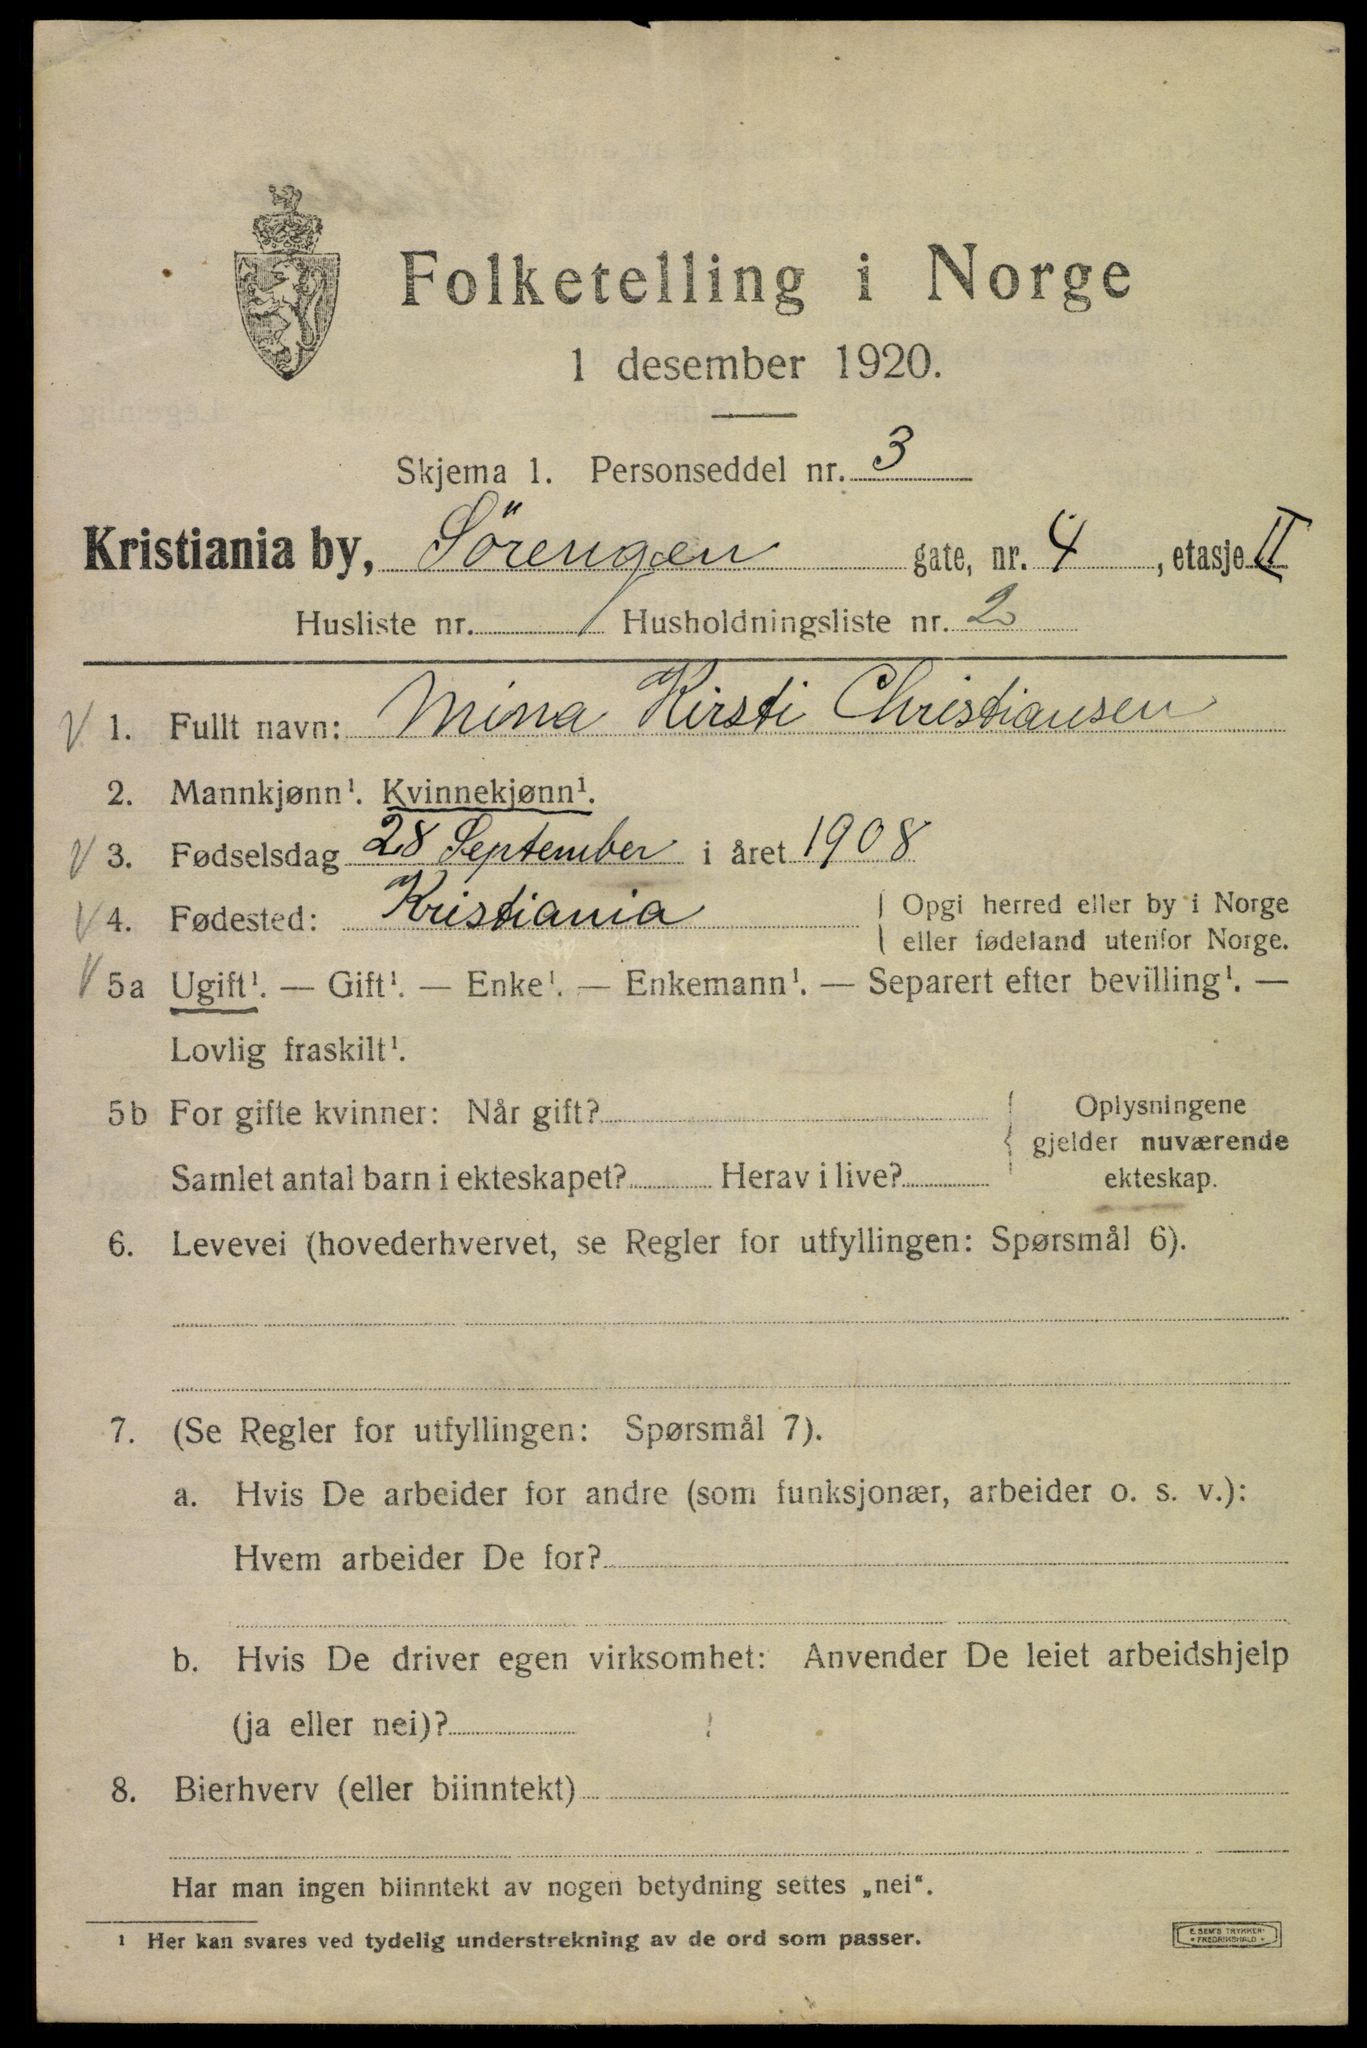 Folketelling i Norge
1 desember 1920.
Skjema 1. Personseddel nr. 3
Kristiania by, Sörengen gate, nr. 4, etasje II
Husliste nr. 1 Husholdningsliste nr. 2
1. Fullt navn: Mina Kirsti Christiansen
2. Mannkjønn¹. Kvinnekjønn¹.
3. Fødselsdag 28 September i året 1908
4. Fødested: Kristiania Opgi herred eller by i Norge
eller fødeland utenfor Norge.
5a Ugift¹. — Gift¹. — Enke¹. — Enkemann¹. — Separert efter bevilling¹. —
Lovlig fraskilt¹.
5b For gifte kvinner: Når gift? Oplysningene
gjelder nuværende
Samlet antal barn i ekteskapet? Herav i live? ekteskap.
6. Levevei (hovederhvervet, se Regler for utfyllingen: Spørsmål 6).
7. (Se Regler for utfyllingen: Spørsmål 7).
a. Hvis De arbeider for andre (som funksjonær, arbeider o. s. v.):
Hvem arbeider De for?
b. Hvis De driver egen virksomhet: Anvender De leiet arbeidshjelp
(ja eller nei)?
8. Bierhverv (eller biinntekt)
Har man ingen biinntekt av nogen betydning settes „nei“.
¹ Her kan svares ved tydelig understrekning av de ord som passer.
E. SEM'S TRYKKERI
• FREDRIKSHALD •